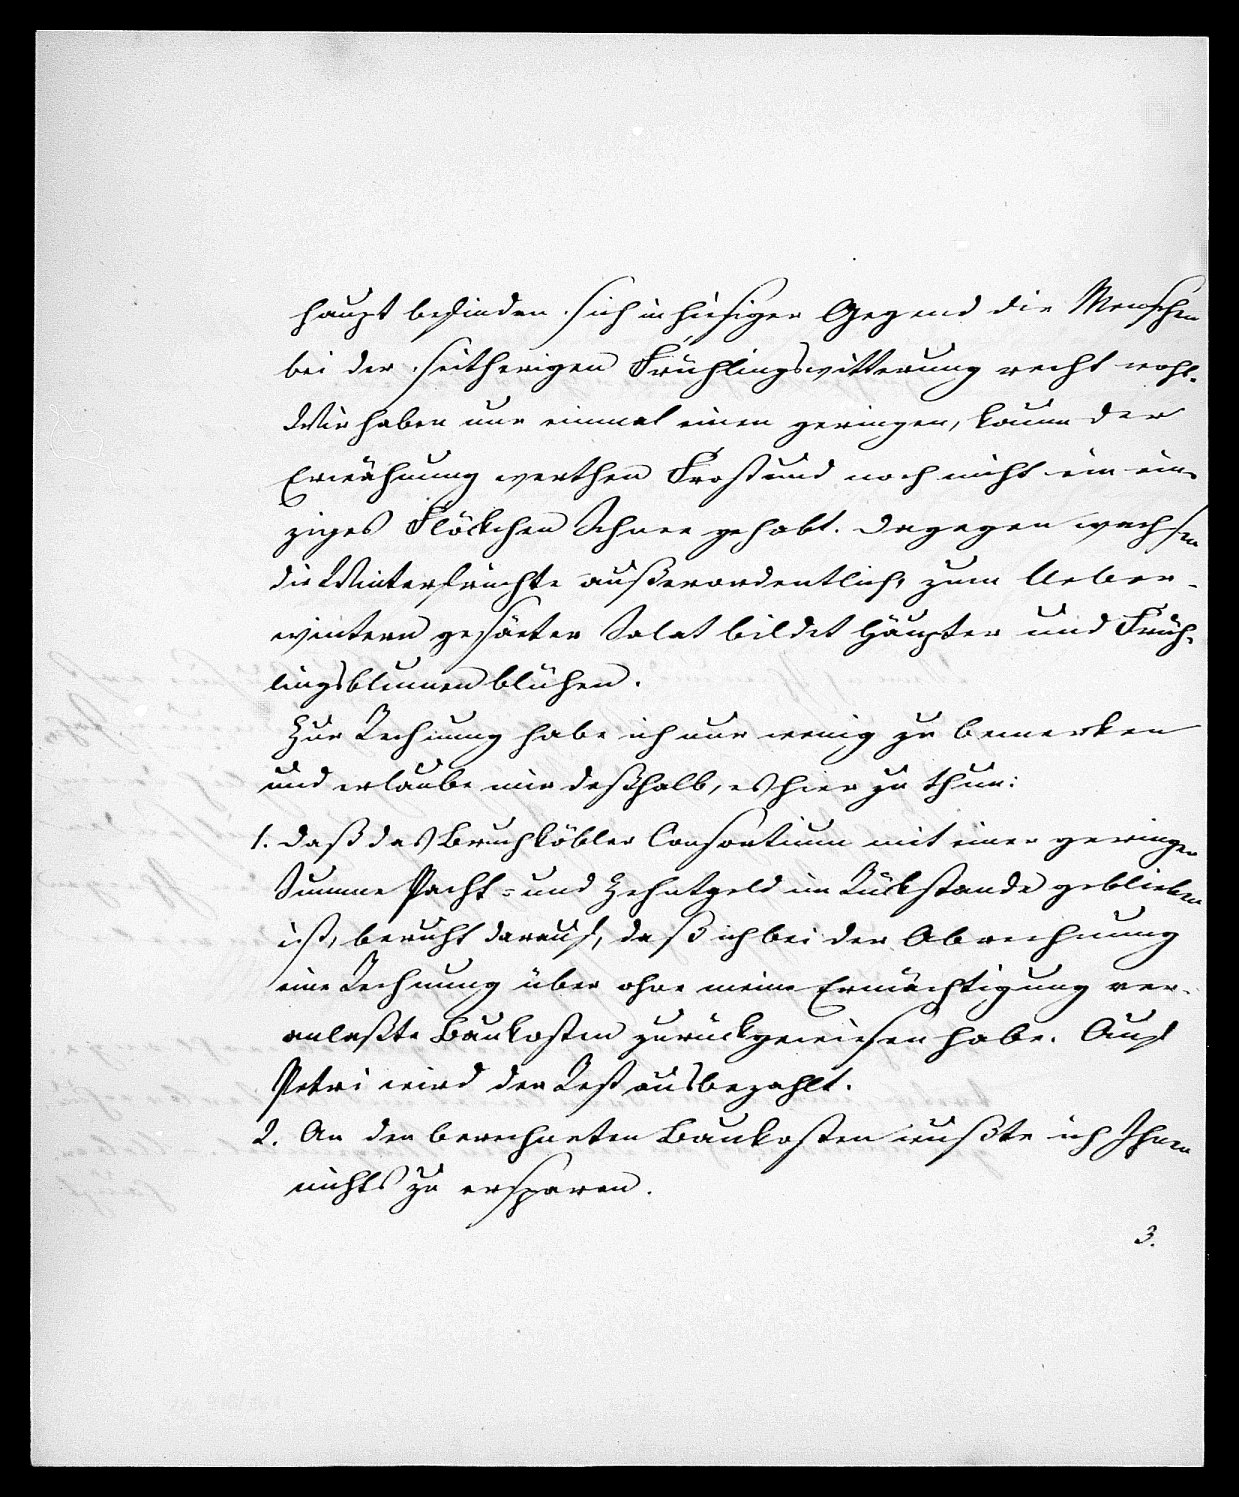 haupt befinden sich in hiesiger Gegend die Menschen
bei der seitherigen Frühlingswitterung recht wohl.
Wir haben nur einmal einen geringen, kaum der
Erwähnung werthen Frost und noch nicht ein ein-
ziges Flöckchen Schnee gehabt. Dagegen wachsen
die Winterfrüchte außerordentlich, zum Ueber-
wintern gesäeter Salat bildet Häupter und Früh-
lingsblumen blühen.
Zur Rechnung habe ich nur wenig zu bemerken
und erlaube mir deßhalb, es hier zu thun:
1. Daß das Bruchköbler Consortium mit einer geringen
Summe Pacht- und Zehntgeld im Rückstande geblieben
ist, beruht darauf, daß ich bei der Abrechnung
eine Rechnung über ohne meine Ermächtigung ver-
anlaßte Baukosten zurückgewiesen habe. Auf
Petri wird der Rest ausbezahlt.
2. An den berechneten Baukosten wußte ich Ihnen
nichts zu ersparen.
3.